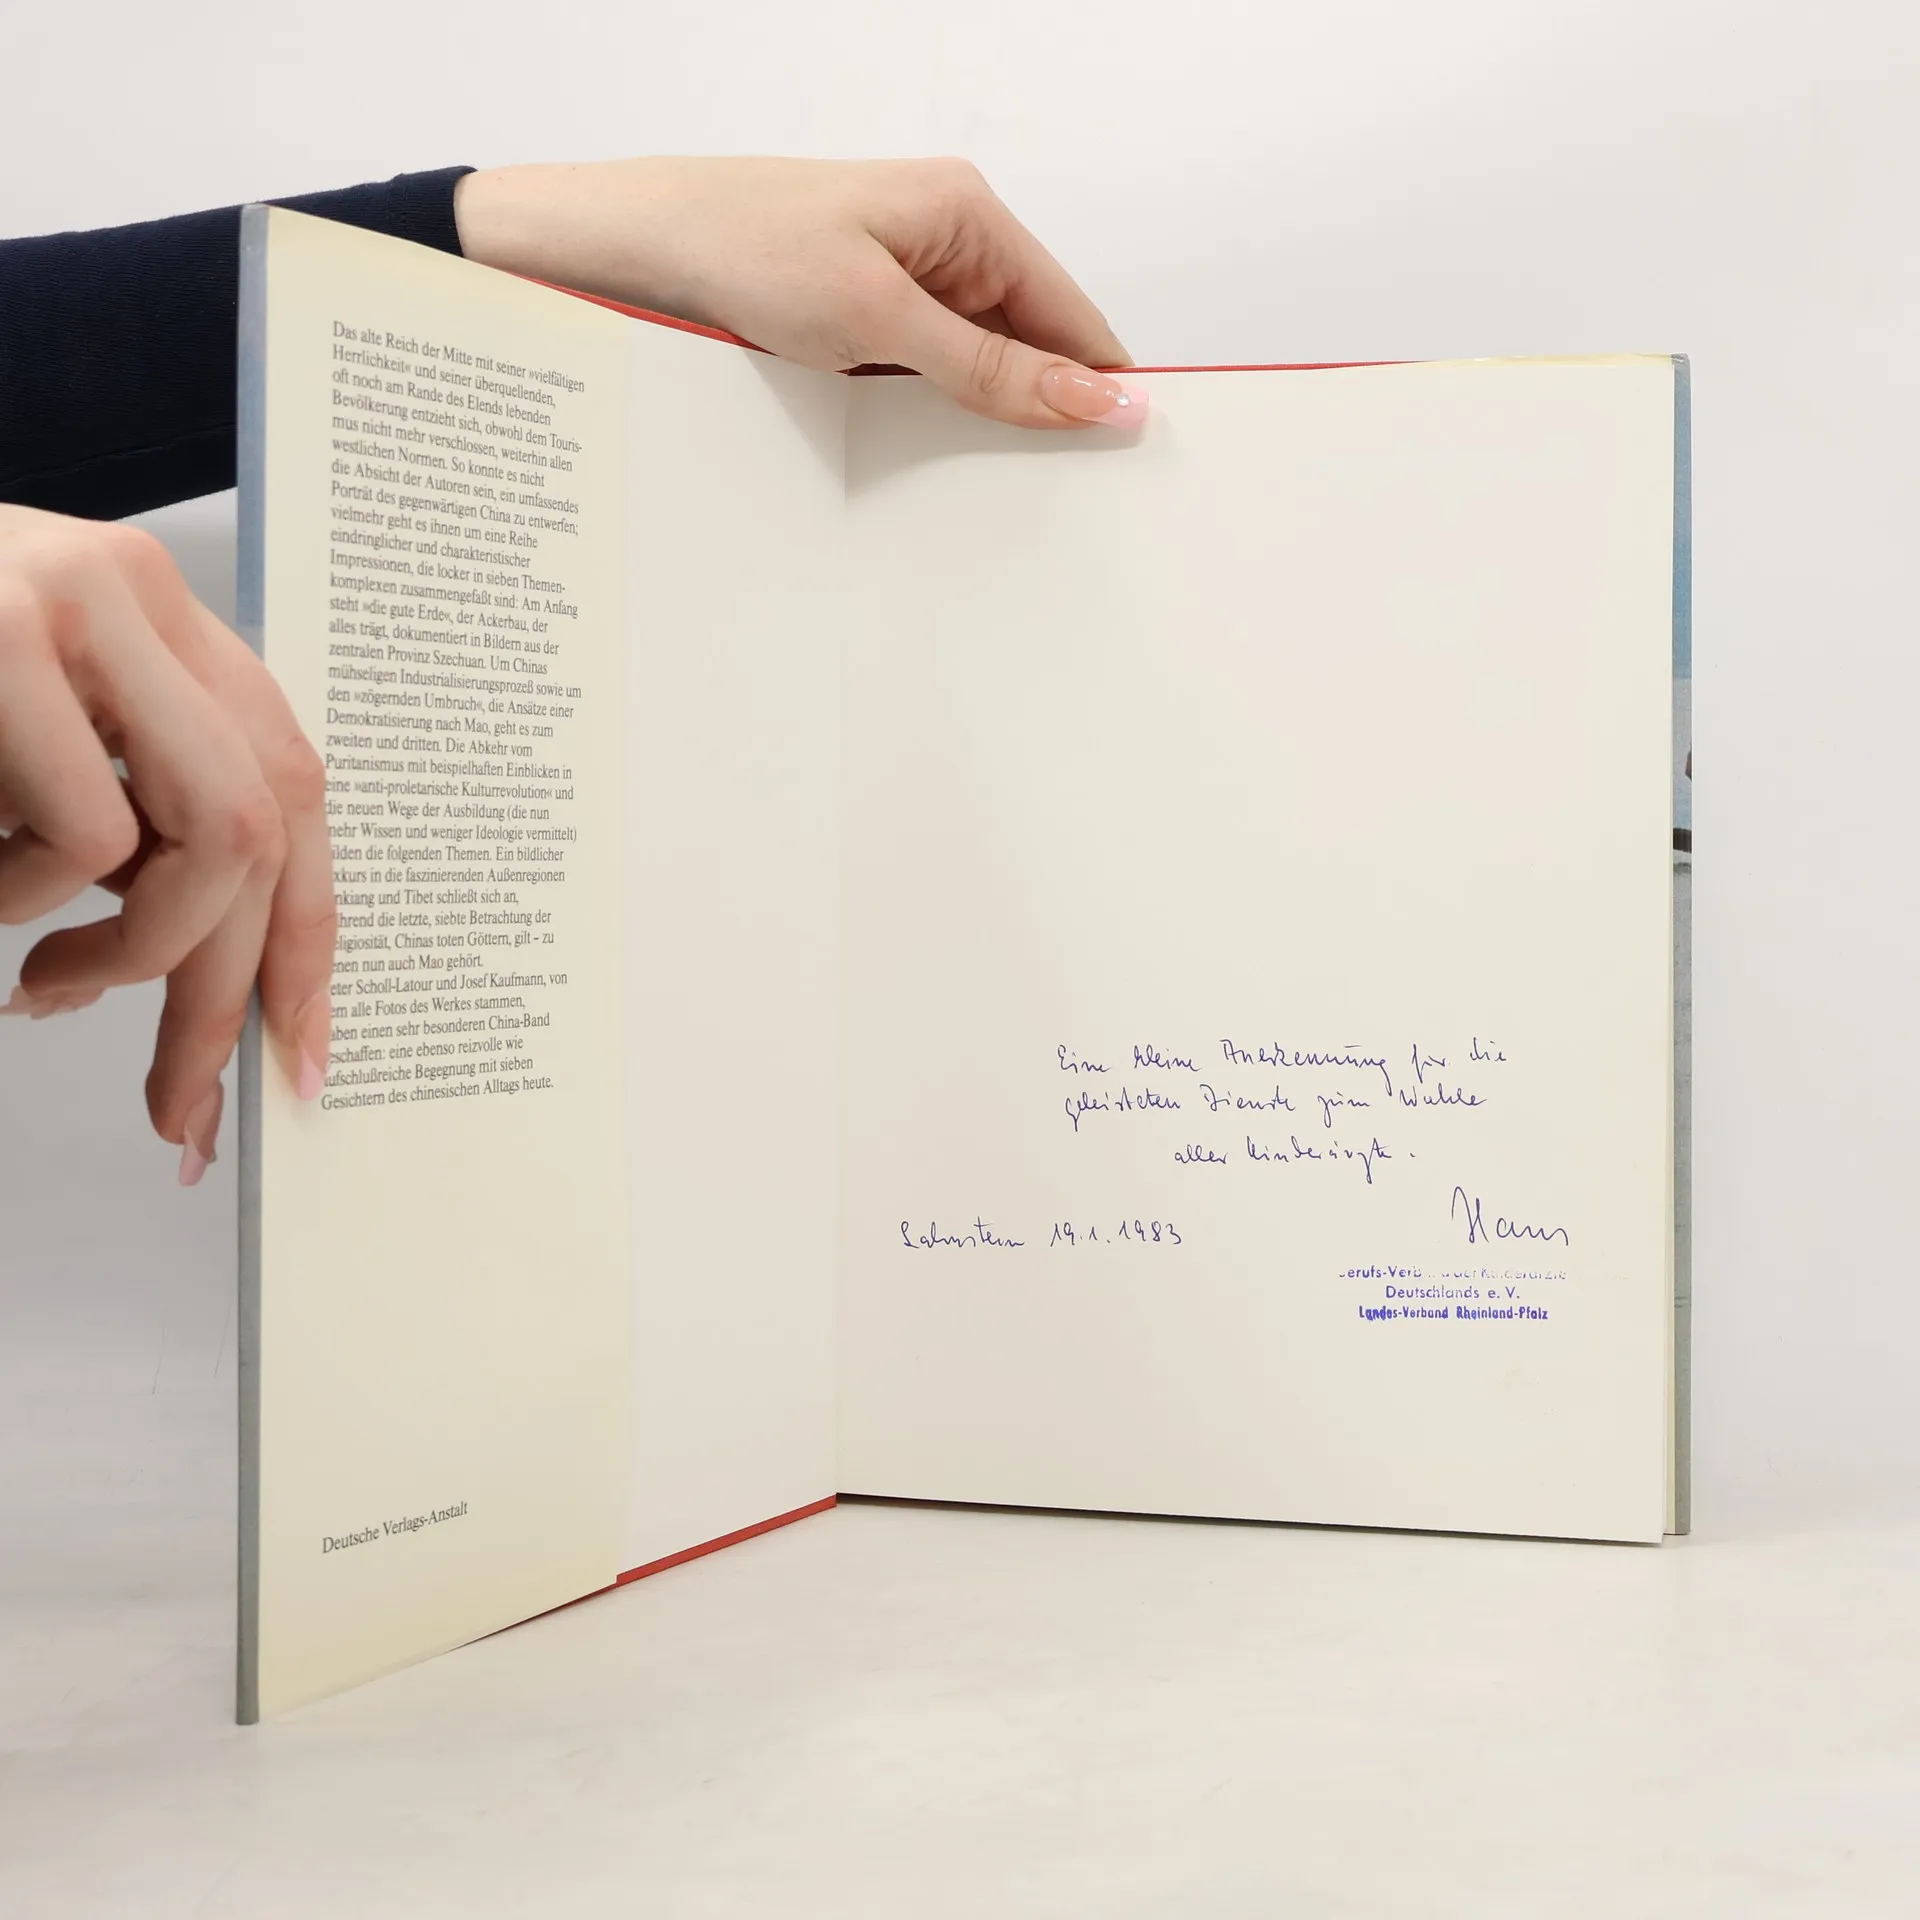 Das alte Reich der Mitte mit seiner »vielfältigen
Herrlichkeit« und seiner überquellenden,
oft noch am Rande des Elends lebenden
Bevölkerung entzieht sich, obwohl dem Touris-
mus nicht mehr verschlossen, weiterhin allen
westlichen Normen. So konnte es nicht
die Absicht der Autoren sein, ein umfassendes
Porträt des gegenwärtigen China zu entwerfen;
vielmehr geht es ihnen um eine Reihe
eindringlicher und charakteristischer
Impressionen, die locker in sieben Themen-
komplexen zusammengefaßt sind: Am Anfang
steht »die gute Erde«, der Ackerbau, der
alles trägt, dokumentiert in Bildern aus der
zentralen Provinz Szechuan. Um Chinas
mühseligen Industrialisierungsprozeß sowie um
den »zögernden Umbruch«, die Ansätze einer
Demokratisierung nach Mao, geht es zum
zweiten und dritten. Die Abkehr vom
Puritanismus mit beispielhaften Einblicken in
eine »anti-proletarische Kulturrevolution« und
die neuen Wege der Ausbildung (die nun
mehr Wissen und weniger Ideologie vermittelt)
ilden die folgenden Themen. Ein bildlicher
xkurs in die faszinierenden Außenregionen
nkiang und Tibet schließt sich an,
hrend die letzte, siebte Betrachtung der
eligiosität, Chinas toten Göttern, gilt – zu
enen nun auch Mao gehört.
eter Scholl-Latour und Josef Kaufmann, von
em alle Fotos des Werkes stammen,
aben einen sehr besonderen China-Band
eschaffen: eine ebenso reizvolle wie
ufschlußreiche Begegnung mit sieben
Gesichtern des chinesischen Alltags heute.
Deutsche Verlags-Anstalt
Eine kleine Anerkennung für die
geleisteten Dienste zum Wohle
aller Kinderärzte.
Lahnstein 19.1.1983
Hans
erufs-Verb
Deutschlands e. V.
Landes-Verband Rheinland-Pfalz